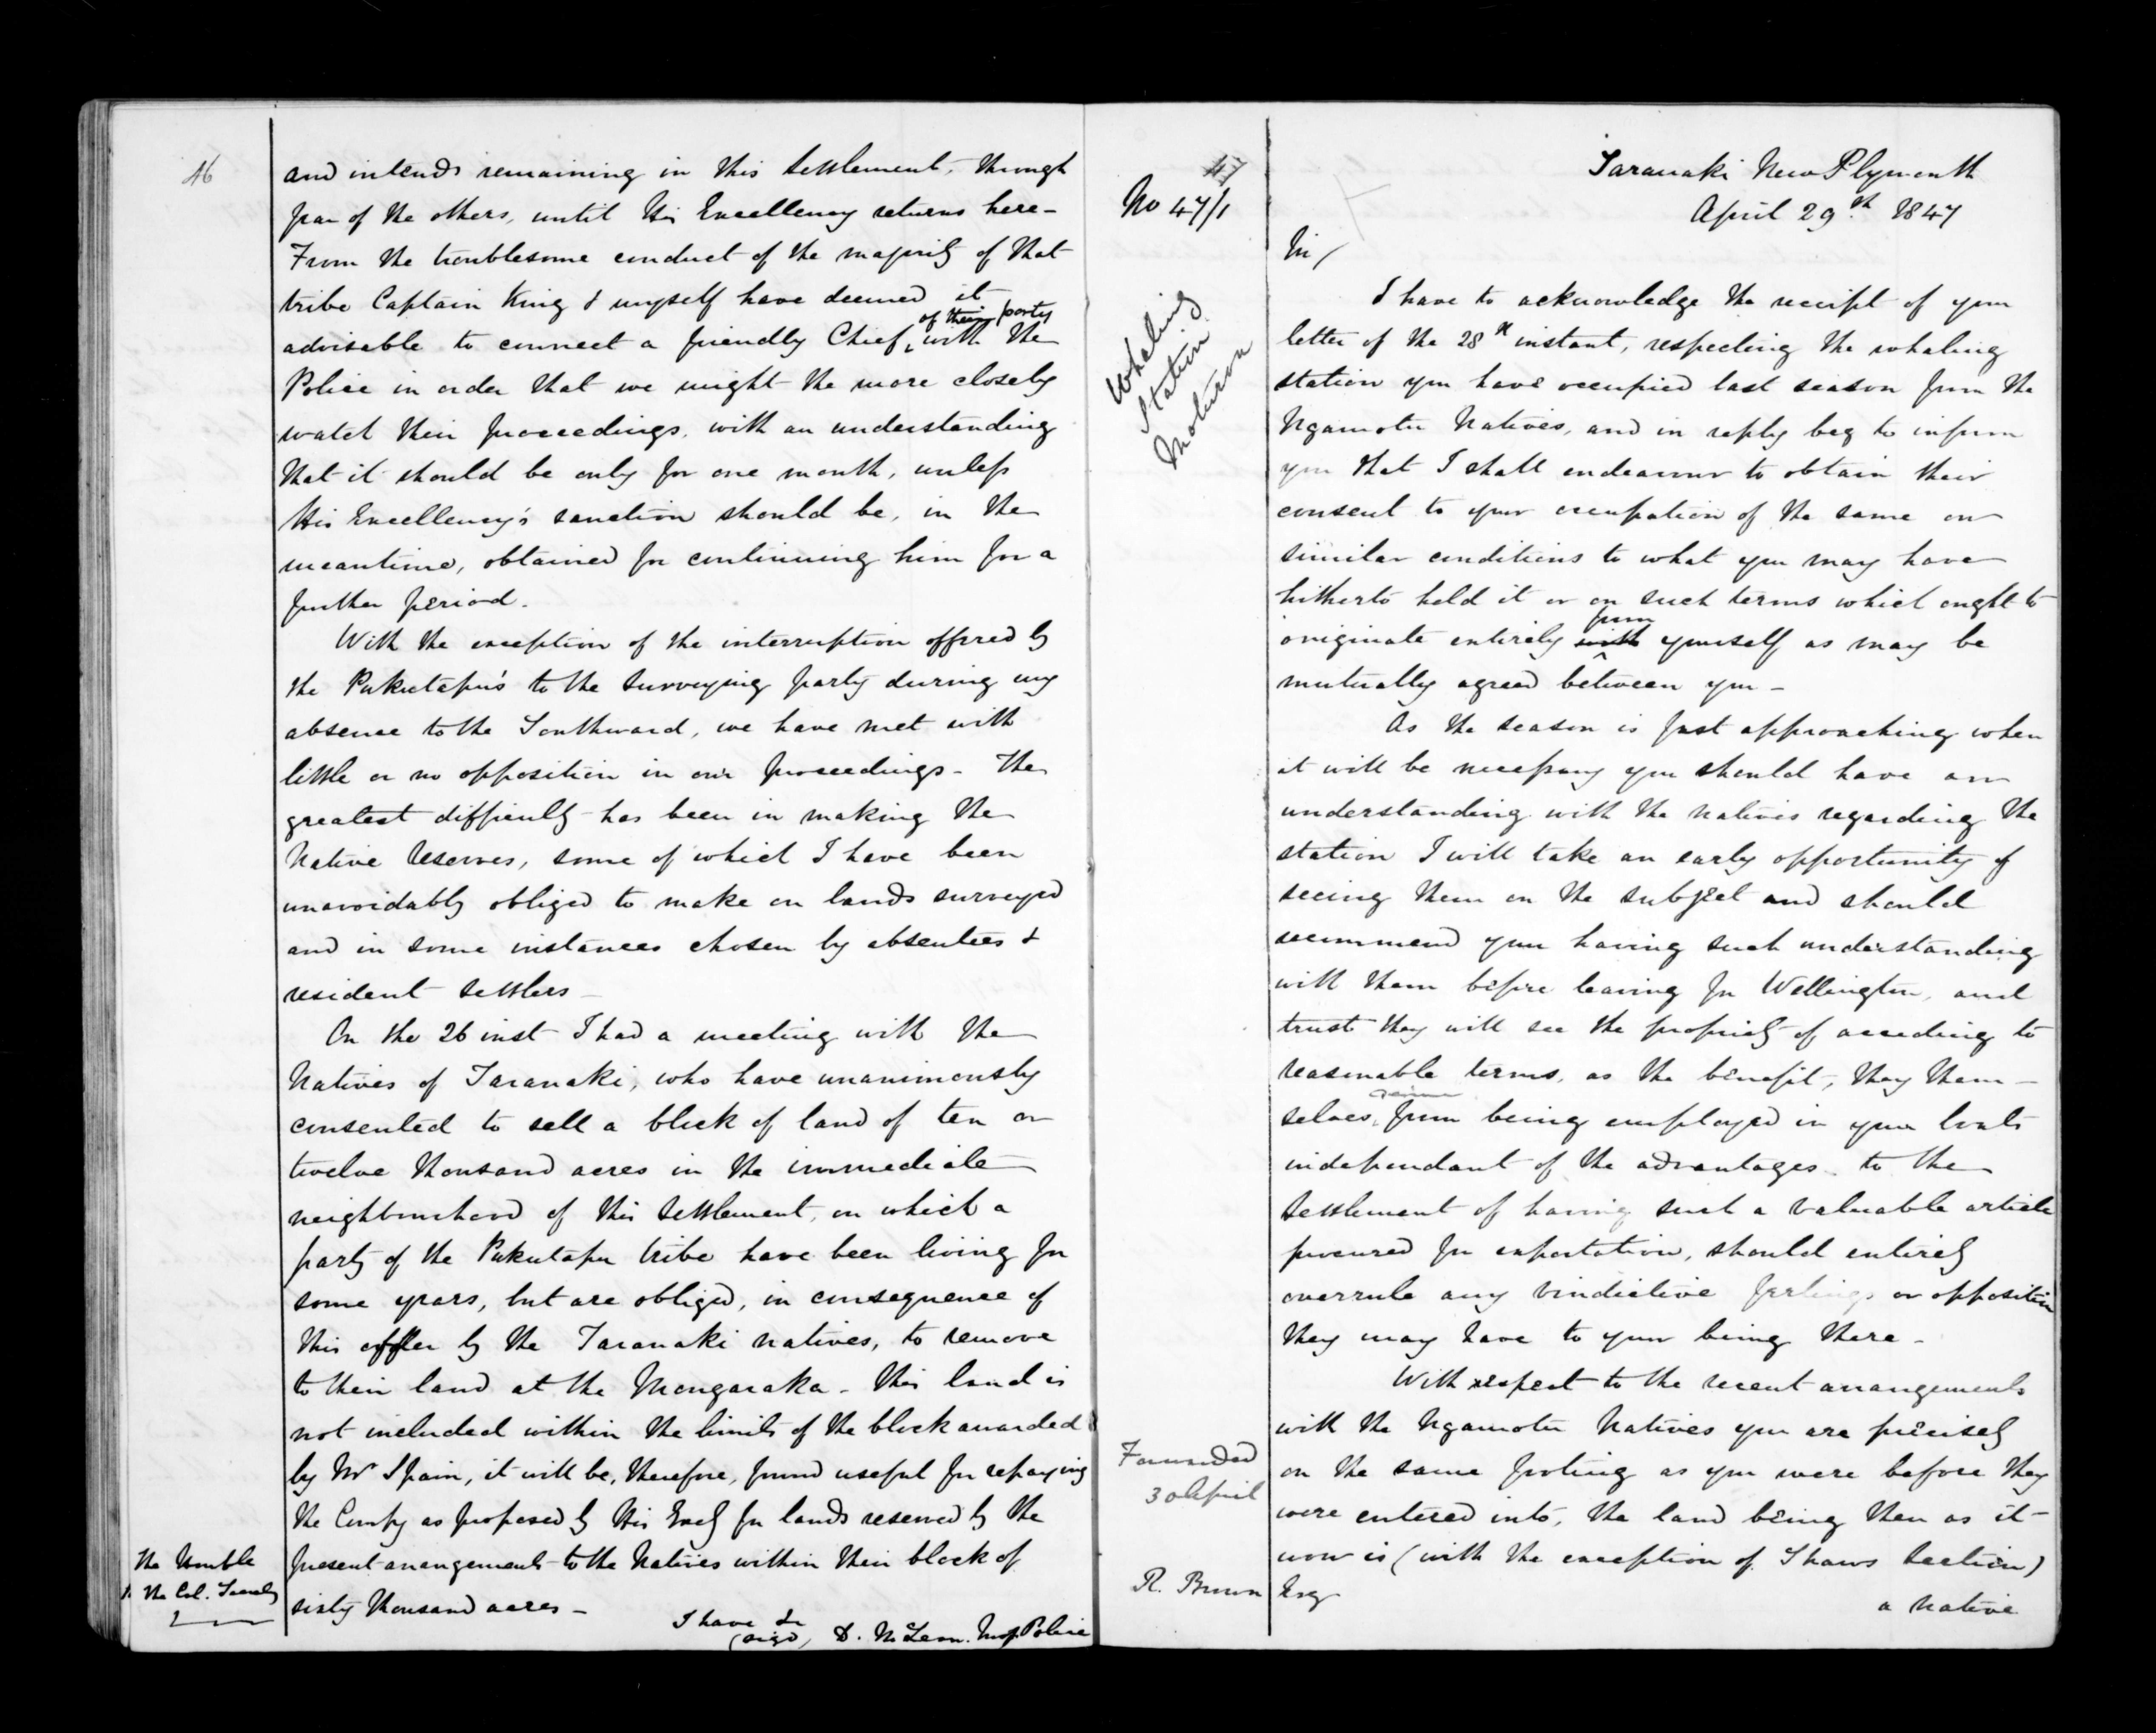 46
and intends remaining in this settlement, through
fear of the others, until His Excellency returns here -
From the troublesome conduct of the majority of that
tribe Captain King & myself have deemed it
of their party
advisable to connect a friendly Chief, with the
Police in order that we might the more closely
watch their proceedings, with an understanding
that it should be only for one month, unless
His Excellency's sanction should be, in the
meantime, obtained for continuing him for a
further period.
With the exception of the interruption offered by
the Puketapu's to the Surveying party during my
absence to the Southward, we have met with
little or no opposition in our proceedings - The
greatest difficulty has been in making the
Native reserves, some of which I have been
unavoidably obliged to make on lands surveyed
and in some instances chosen by absentees &
resident settlers -
On the 26 inst I had a meeting with the
Natives of Taranaki, who have unanimously
consented to sell a block of land of ten or
twelve thousand acres in the immediate
neighbourhood of this settlement, on which a
party of the Puketapu tribe have been living for
some years, but are obliged, in consequence of
this offer by the Taranaki natives, to remove
to their land at the Mangaraka - This land is
not included within the limits of the block awarded
by Mr Spain, it will be, therefore, found useful for repaying
the Compy as proposed by His Excy for lands reserved by the
present arrangements to the Natives within their block of
sixty thousand acres -
I have &c
(sigd) D. McLean. Insp. Police
The Honble
The Col. Secrety
47
No 47/1
Whaling
Station
Moturoa
Taranaki New Plymouth
April 29th 1847
Sir/
I have to acknowledge the receipt of your
letter of the 28th instant, respecting the whaling
station you have occupied last season from the
Ngamotu Natives, and in reply beg to inform
you that I shall endeavour to obtain their
consent to your occupation of the same on
similar conditions to what you may have
hitherto held it or on such terms which ought to
from
originate entirely with yourself as may be
mutually agreed between you -
As the season is fast approaching when
it will be necessary you should have an
understanding with the natives regarding the
station I will take an early opportunity of
seeing them on the subject and should
recommend your having such understanding
with them before leaving for Wellington, and
trust they will see the propriety of acceding to
reasonable terms, as the benefit, they them-
derive
selves from being employed in your boats
independant of the advantages to the
settlement of having such a valuable article
procured for exportation, should entirely
overrule any vindictive feelings or opposition
they may have to your being there -
With respect to the recent arrangements
with the Ngamotu Natives you are precisely
on the same footing as you were before they
were entered into, the land being then as it
now is (with the exception of Shaws Section)
a native
Forwarded
30 April
R. Brown Esq